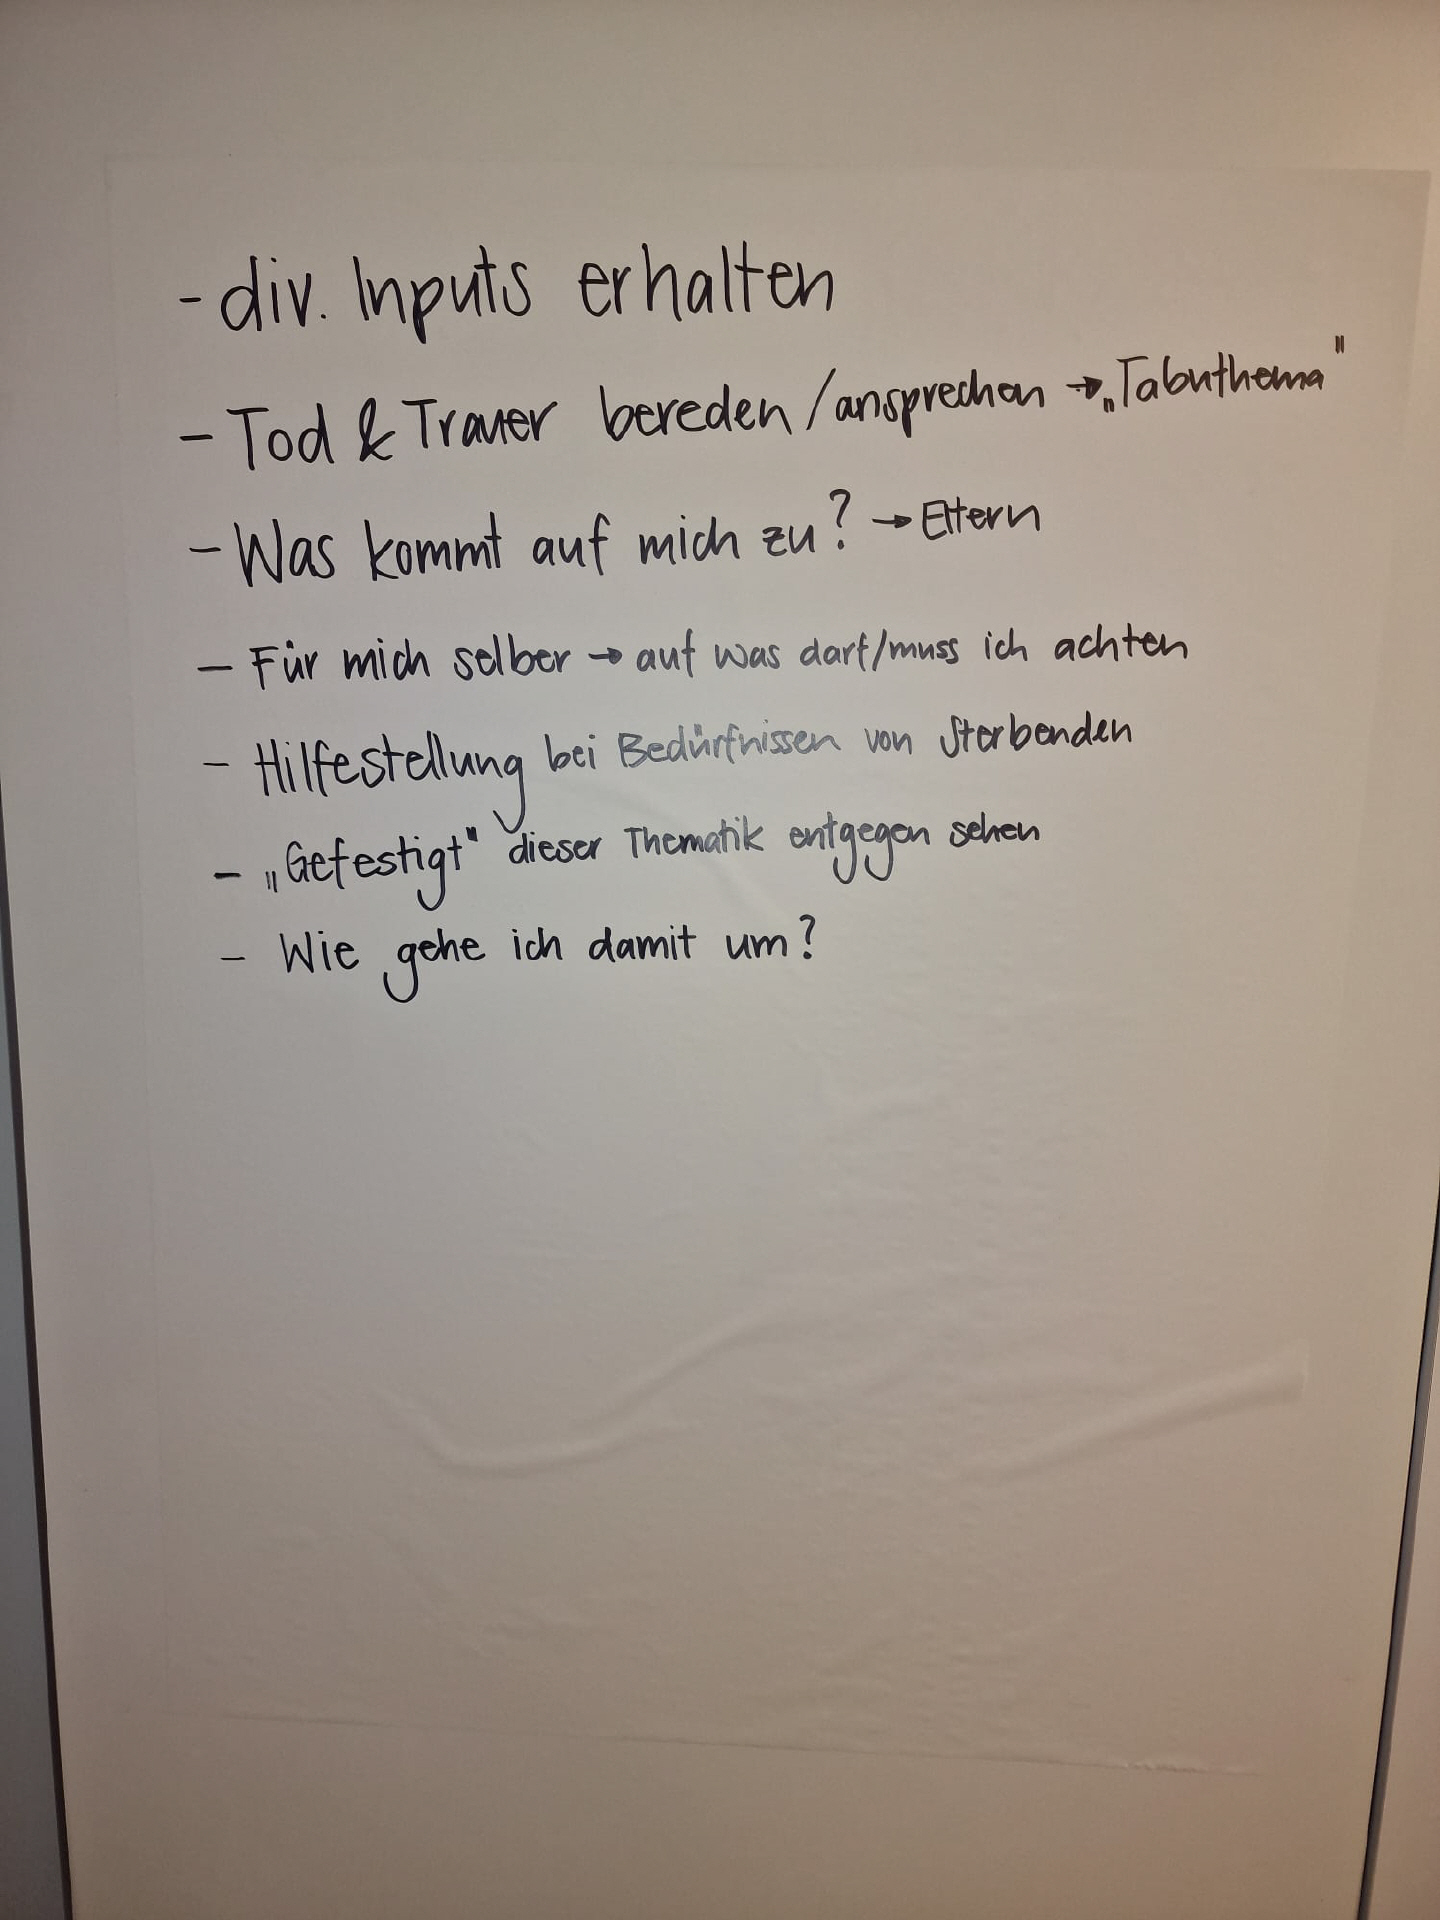 - div. Inputs erhalten
- Tod & Trauer bereden/ansprechen → „Tabuthema"
- Was kommt auf mich zu? → Eltern
- Für mich selber → auf was darf/muss ich achten
- Hilfestellung bei Bedürfnissen von Sterbenden
- „Gefestigt" dieser Thematik entgegen sehen
- Wie gehe ich damit um?